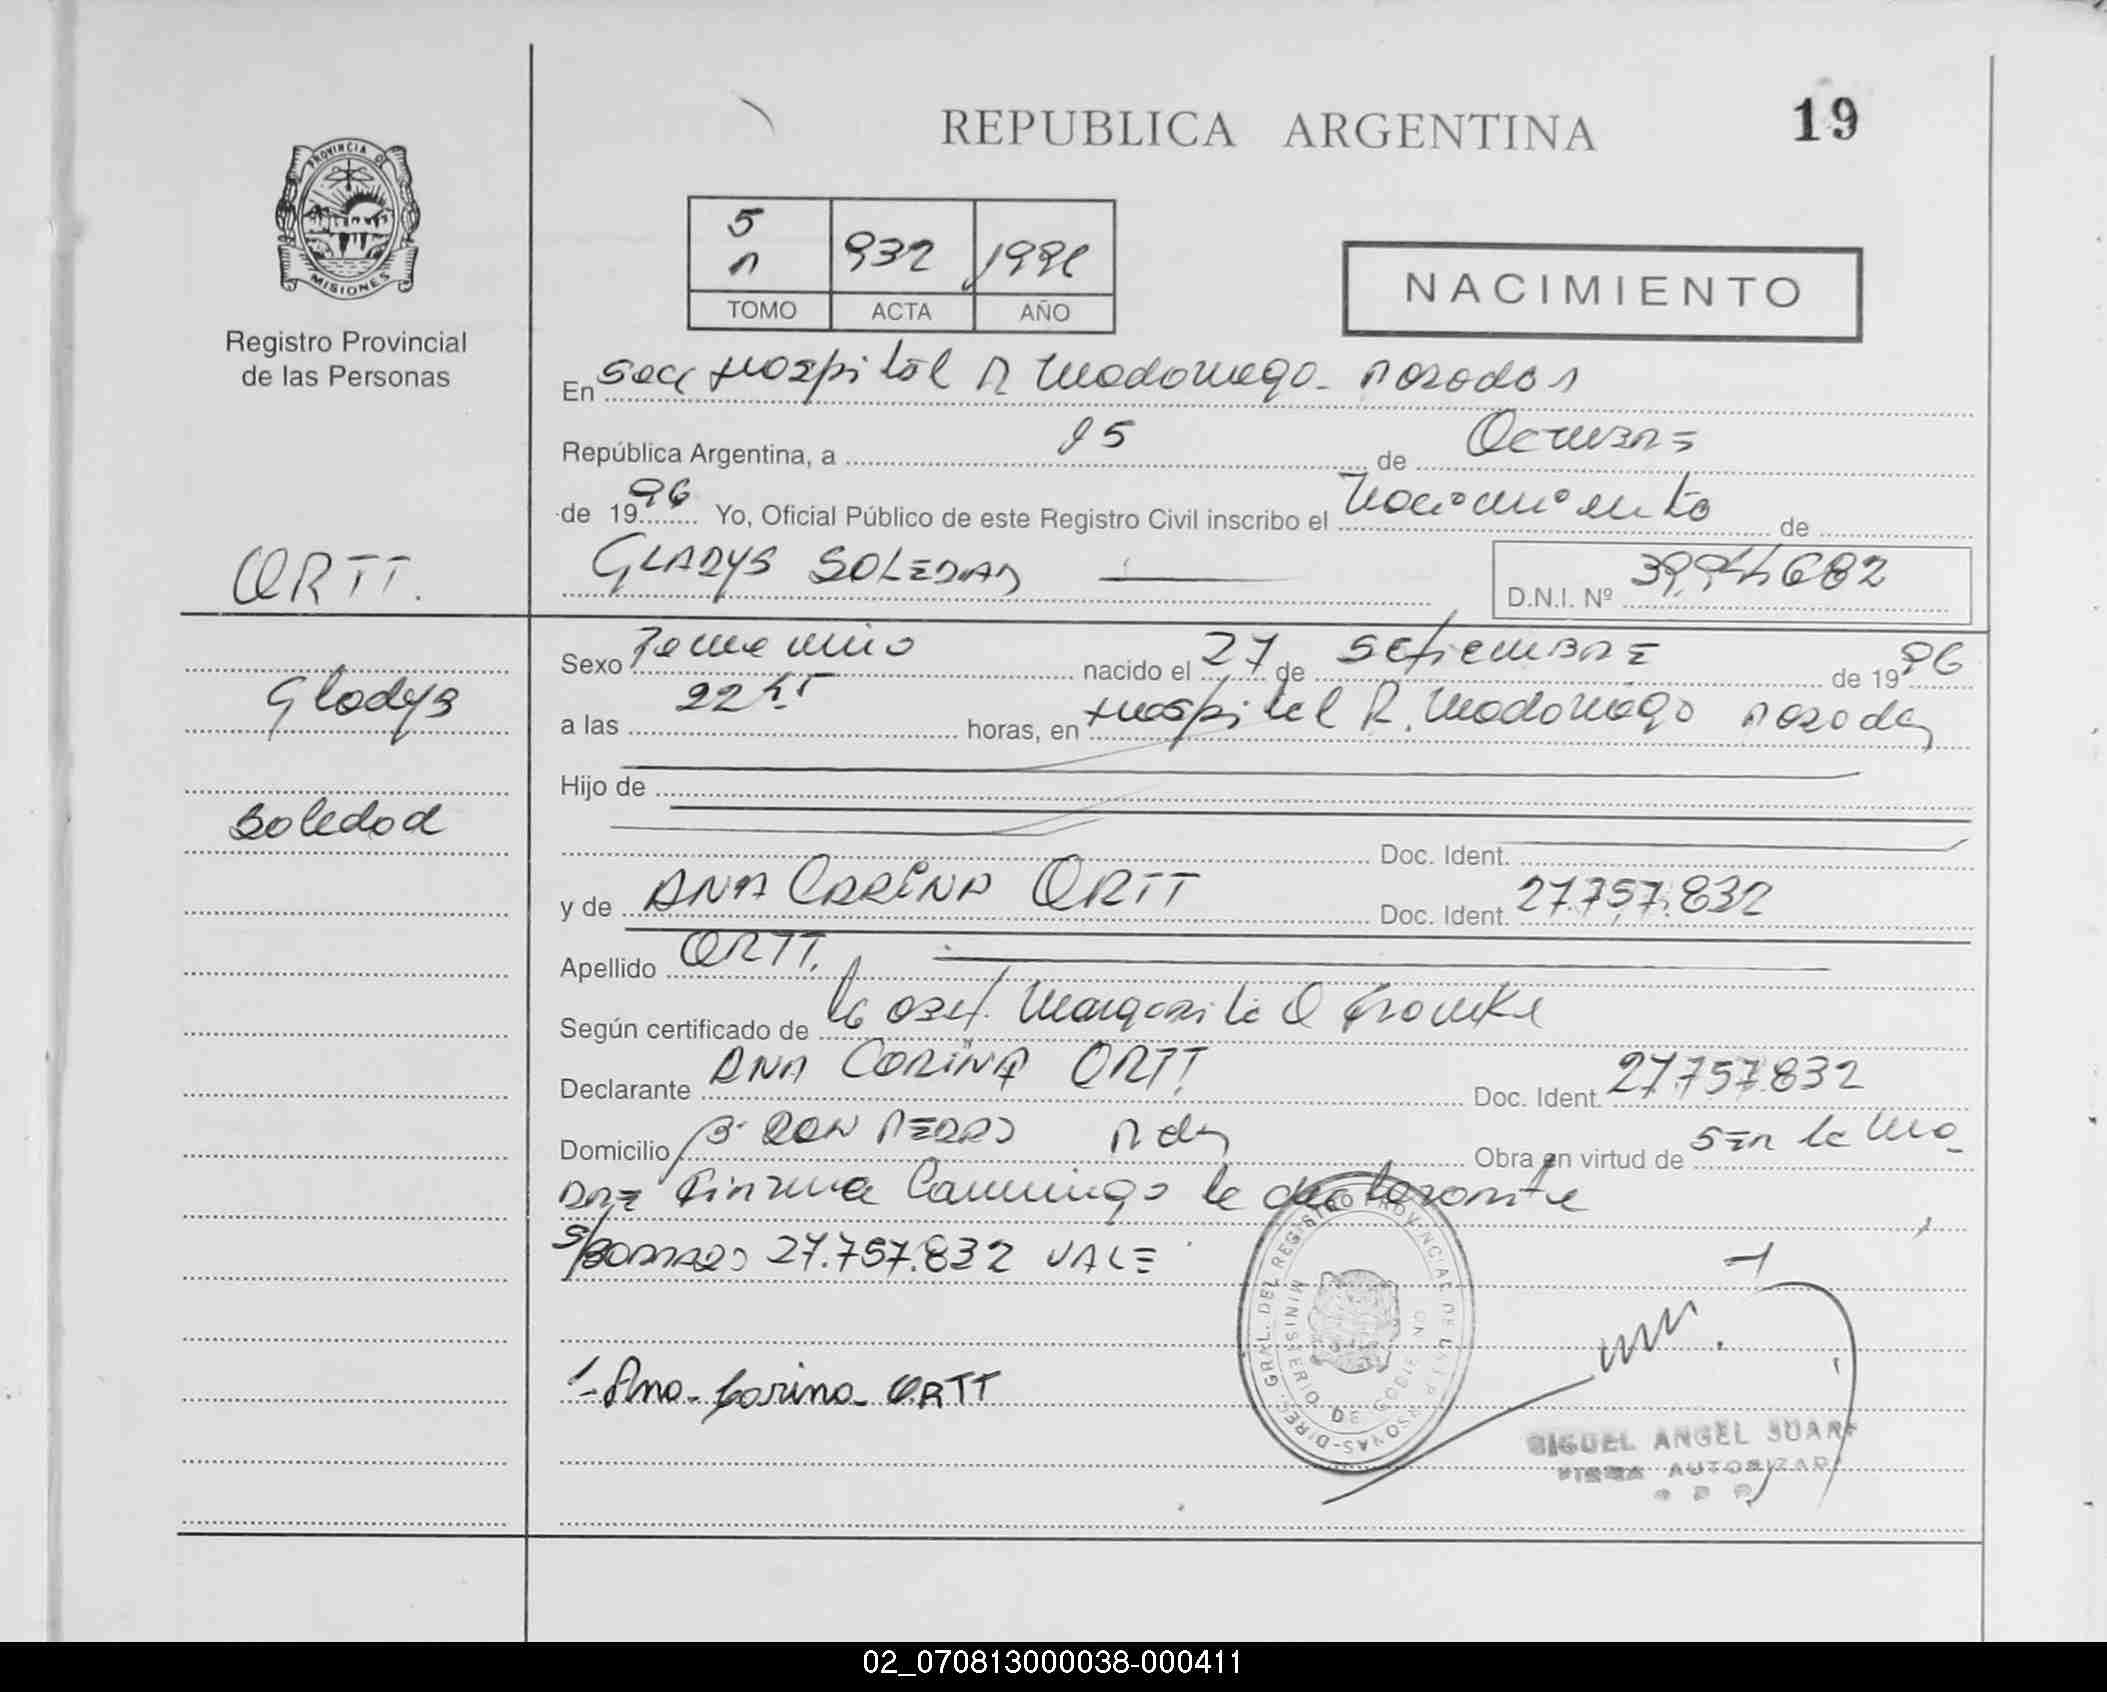 REPUBLICA ARGENTINA
19
PROVINCIA DE
MISIONES
Registro Provincial
de las Personas
5
932
1996
TOMO
ACTA
AÑO
NACIMIENTO
En Secc Hospital R Madariaga - Posadas
República Argentina, a 15 de OCTUBRE
de 1996 Yo, Oficial Público de este Registro Civil inscribo el Nacimiento de
GLADYS SOLEDAD
D.N.I. Nº 39.944.682
ORTT.
Gladys
Soledad
Sexo Femenino nacido el 27 de SETIEMBRE de 1996
a las 22 hs horas, en Hospital R. Madariaga Posadas
Hijo de
Doc. Ident.
y de ANA CARINA ORTT Doc. Ident. 27.757.832
Apellido ORTT.
Según certificado de la obst. Margarita
Declarante ANA CARINA ORTT Doc. Ident. 27.757.832
Domicilio Bº DON PEDRO Pdas Obra en virtud de SER la MA-
DRE Firma Conmigo la declarante
S/BORRADO 27.757.832 VALE
DIREC. GRAL. DEL REGISTRO PROVINCIAL DE LAS PERSONAS
MINISTERIO DE GOBIERNO
Ana Carina ORTT
MIGUEL ANGEL
FIRMA
02_070813000038-000411